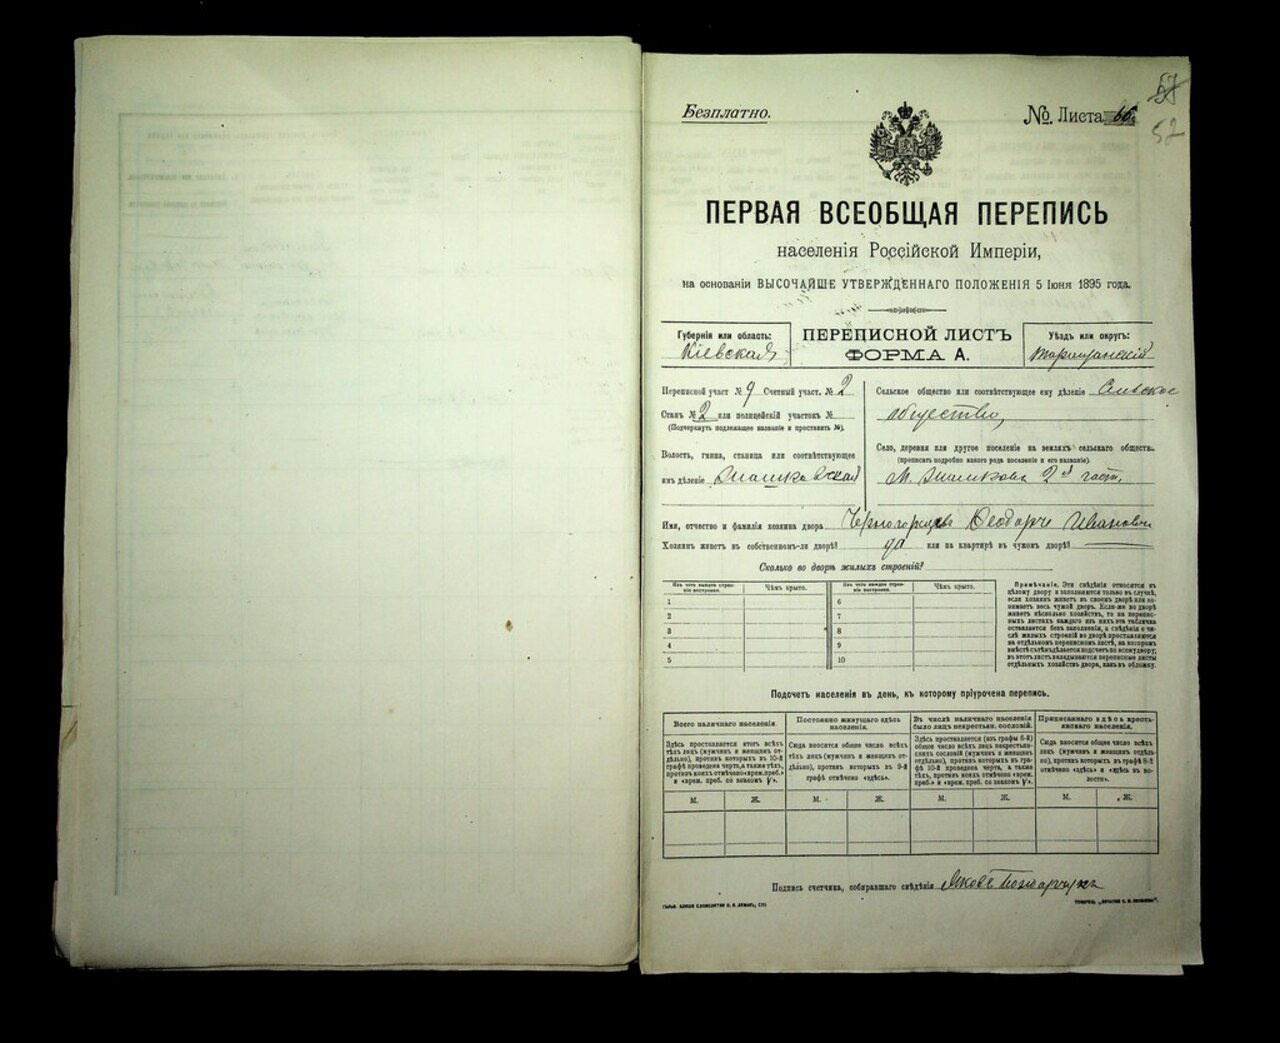 57
Безплатно.
№ Листа 66
52
ПЕРВАЯ ВСЕОБЩАЯ ПЕРЕПИСЬ
населенія Россійской Имперіи,
на основаніи ВЫСОЧАЙШЕ УТВЕРЖДЕННАГО ПОЛОЖЕНІЯ 5 Іюня 1895 года.
Губернія или область:
Кіевская
ПЕРЕПИСНОЙ ЛИСТЪ
ФОРМА А.
Уѣздъ или округъ:
Таращанскій
Переписной участ № 9 Счетный участ. № 2
Станъ № 2 или полицейскій участокъ №
(Подчеркнуть подлежащее названіе и проставить №).
Волость, гмина, станица или соотвѣтствующее
имъ дѣленіе
Сельское общество или соотвѣтствующее ему дѣленіе Сельское
общество,
Село, деревня или другое поселеніе на земляхъ сельскаго обществ.
(прописать подробно какого рода поселеніе и его названіе).
М. 2й част,
Имя, отчество и фамилія хозяина двора Ивановичъ
Хозяинъ живетъ въ собственномъ-ли дворѣ? да или на квартирѣ въ чужомъ дворѣ?
Сколько во дворѣ жилыхъ строеній?
Изъ чего каждое строеніе построено. Чѣмъ крыто. Изъ чего каждое строеніе построено. Чѣмъ крыто.
1 6
2 7
3 8
4 9
5 10
Примѣчаніе. Эти свѣдѣнія относятся къ
цѣлому двору и заполняются только въ случаѣ,
если хозяинъ живетъ въ своемъ дворѣ или занимаетъ весь чужой дворъ. Если-же во дворѣ
живетъ нѣсколько хозяйствъ, то на переписныхъ листахъ каждаго изъ нихъ эта табличка
оставляется безъ заполненія, а свѣдѣнія о числѣ жилыхъ строеній во дворѣ проставляются
на отдѣльномъ переписномъ листѣ, на которомъ
вмѣстѣ съ тѣмъ дѣлается подсчетъ по всему двору;
въ этотъ листъ вкладываются переписные листы
отдѣльныхъ хозяйствъ двора, какъ въ обложку.
Подсчетъ населенія въ день, къ которому пріурочена перепись.
Всего наличнаго населенія.
Здѣсь проставляется итогъ всѣхъ
тѣхъ лицъ (мужчинъ и женщинъ отдѣльно), противъ которыхъ въ 10-й
графѣ проведена черта, а также тѣхъ,
противъ коихъ отмѣчено «врем. преб.»
и «врем. преб. со знакомъ V».
Постоянно живущаго здѣсь
населенія.
Сюда вносится общее число всѣхъ
тѣхъ лицъ (мужчинъ и женщинъ отдѣльно), противъ которыхъ въ 9-й
графѣ отмѣчено «здѣсь».
Въ числѣ наличнаго населенія
было лицъ некрестьян. сословій.
Здѣсь проставляется (изъ графы 6-й)
общее число всѣхъ лицъ некрестьянскихъ сословій (мужчинъ и женщинъ
отдѣльно), противъ которыхъ въ графѣ 10-й проведена черта, а также
тѣхъ, противъ коихъ отмѣчено «врем.
преб.» и «врем. преб. со знакомъ V».
Приписаннаго здѣсь крестьянскаго населенія.
Сюда вносится общее число всѣхъ
лицъ (мужчинъ и женщинъ отдѣльно), противъ которыхъ въ графѣ 8-й
отмѣчено «здѣсь» и «здѣсь въ волости».
М. Ж. М. Ж. М. Ж. М. Ж.
Подпись счетчика, собиравшаго свѣдѣнія Яковъ